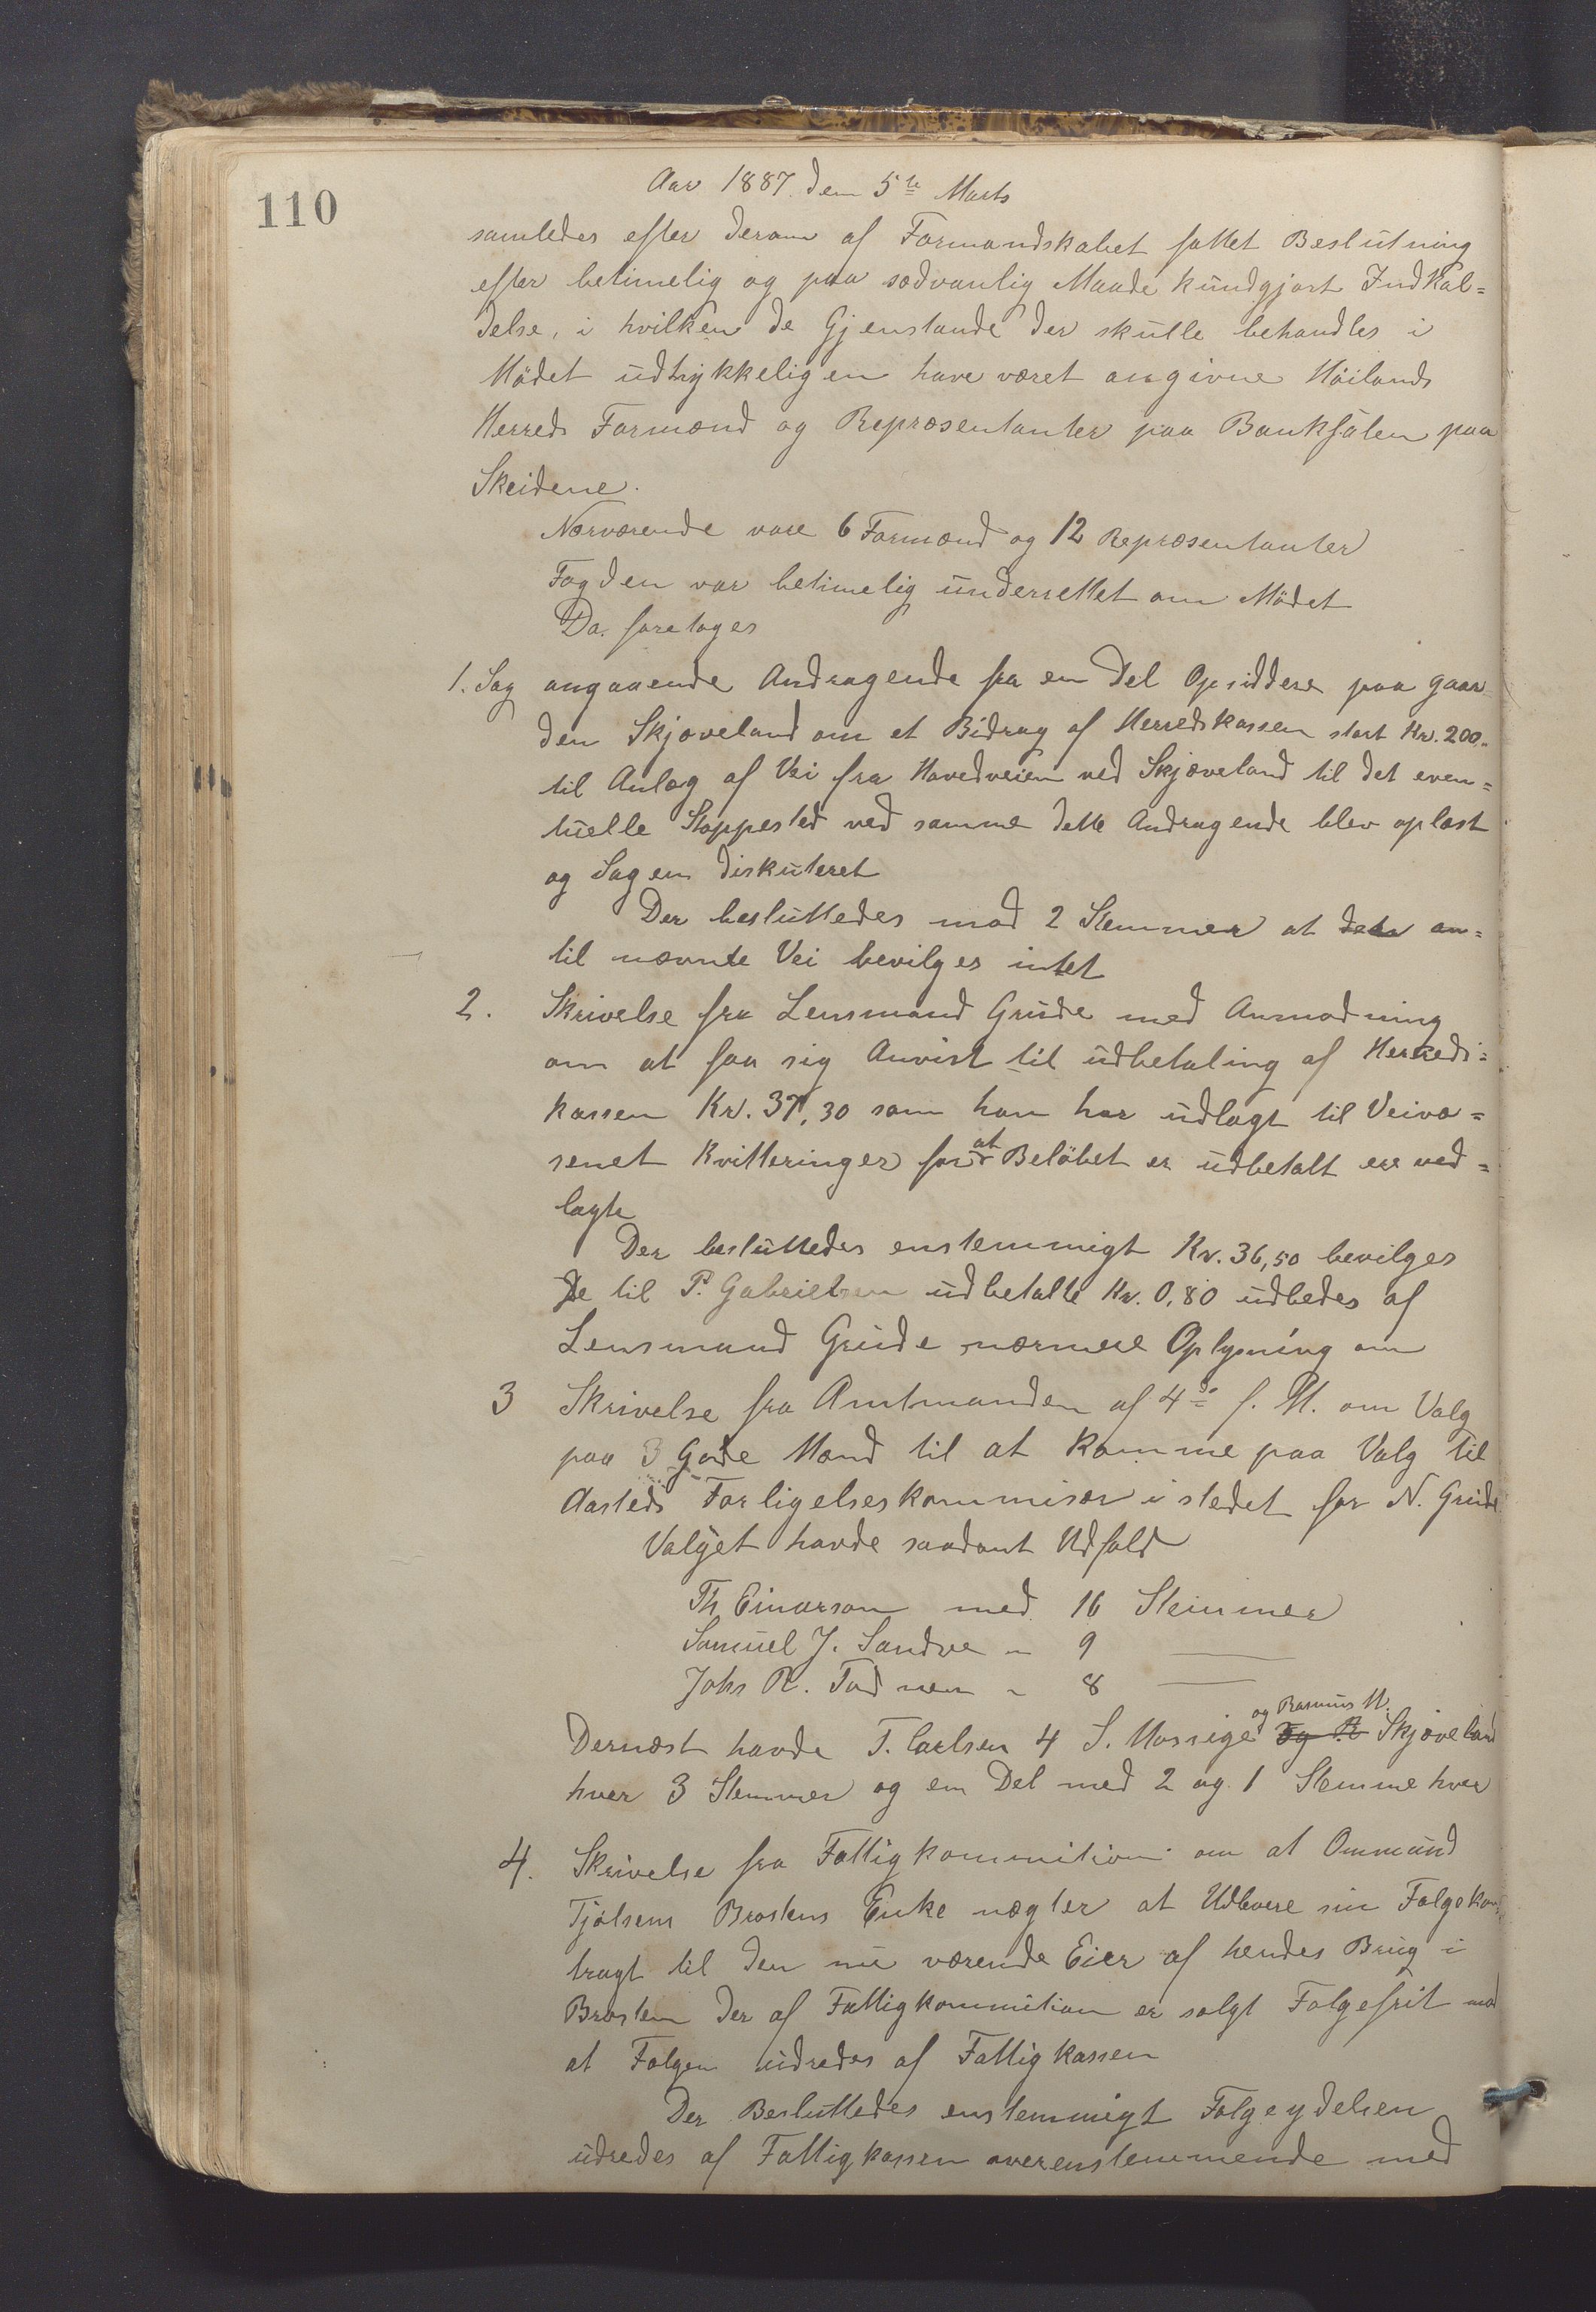 110
Aar 1887 den 5te Marts
samledes efter derom af Formandskabet fattet Beslutning
efter betimelig og paa sædvanlig Maade kundgjort Indkal=
delse, i hvilken de Gjenstande der skulle behandles i
Mödet udtrykkeligen have været angivne Höilands
Herreds Formænd og Repræsentanter paa Banksalen paa
Skeidene.
Nærværende vare 6 Formænd og 12 Repræsentanter
Fogden var betimelig underrettet om Mödet
Da foretoges
1. Sag angaaende Andragende fra en Del Opsiddere paa gaar
den Skjæveland om et Bidrag af Herredskassen stort Kr. 200..
til Anlæg af Vei fra Hovedveien ved Skjæveland til det even=
tuelle Stoppested ved samme dette Andragende blev oplæst
og Sagen diskuteret
Der besluttedes mod 2 Stemmer at an=
til nævnte Vei bevilges intet
2. Skrivelse fra Lensmand Grude med Anmodning
om at faa sig Anvist til udbetaling af Herreds=
kassen Kr. 37,30 som han har udlagt til Veivæ=
senet Kvitteringer for at Belöbet er udbetalt ere ved=
lagte
Der besluttedes enstemmigt Kr. 36,50 bevilges
De til P. Gabrielsen udbetalte Kr. 0,80 udbedes af
Lensmand Grude nærmere Oplysning om
3 Skrivelse fra Amtmanden af 4de f. M. om Valg
paa 3 Gode Mænd til at komme paa Valg til
Aasteds Forligelseskommisær i stedet for N. Grude
Valget havde saadant Udfald
Th Einarson med 16 Stemmer
Samuel J. Sandve " 9 —
Johs R. Todnem " 8 —
Dernæst havde T. Carlsen 4 S. Mossige og Rasmus M. og R Skjæveland
hver 3 Stemmer og en Del med 2 og 1 Stemme hver
4. Skrivelse fra Fattigkommition om at Ommund
Tjölsens Brostens Enke nægter at Udlevere sin Folgekon
tragt til den nu værende Eier af hendes Brug i
Brosten der af Fattigkommition er solgt Folgefrit mod
at Folgen udredes af Fattigkassen
Der Besluttedes enstemmigt Folgeydelsen
udredes af Fattigkassen overenstemmende med